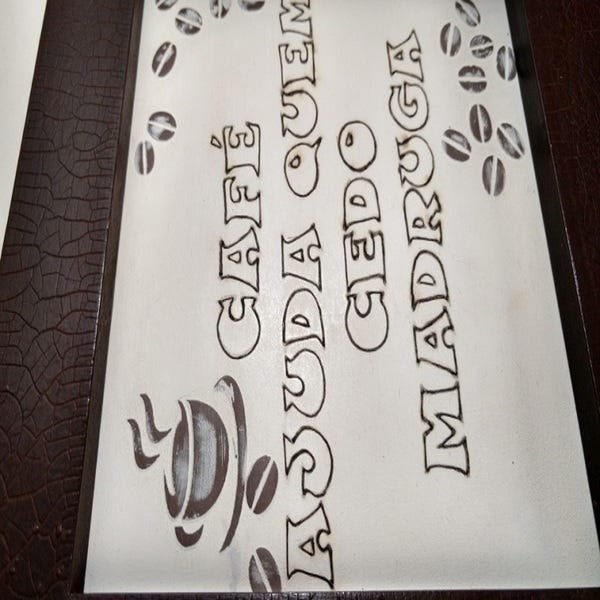 CAFÉ
AJUDA QUEM
CEDO
MADRUGA